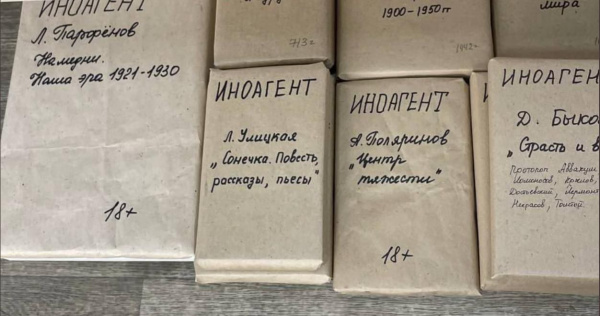 ИНОАГЕНТ
Л. Парфёнов
Намедни.
Наша эра 1921-1930
713г
1900-1950гг
мира
ИНОАГЕНТ
Л. Улицкая
„Сонечка. Повесть,
рассказы, пьесы"
18+
ИНОАГЕНТ
А. Поляринов
„Центр
тяжести"
18+
ИНОАГЕН
Д. Быко
„Страсть и в
Протопоп Аввакум
Ломоносов, Крылов,
Достоевский, Лермон
Некрасов, Толстой.
18+